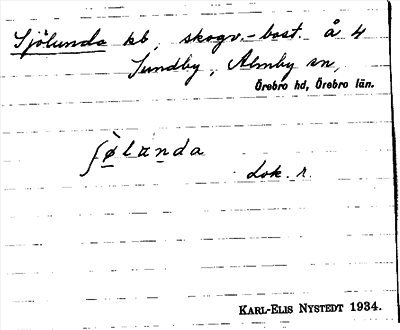 Sjölunda kb, skogv.-bost. å 4
Sundby, Almby sn,
Örebro hd, Örebro län.
ʃø̀landa
Lok. r.
KARL-ELIS NYSTEDT 1934.